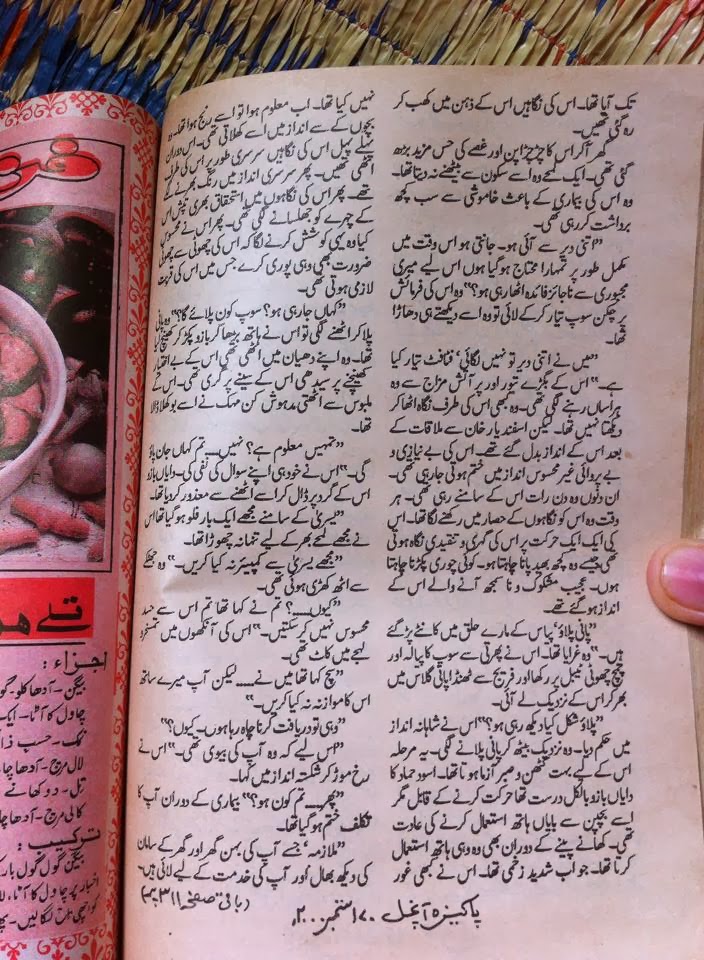 تک آیا تھا۔ اس کی نگاہیں اس کے ذہن میں کھب کر
رہ گئی تھیں۔
گھر آکر اس کا چڑچڑاپن اور غصے کی حس مزید بڑھ
گئی تھی۔ ایک لمحے وہ اسے سکون سے بیٹھنے نہ دیتا تھا۔
وہ اس کی بیماری کے باعث خاموشی سے سب کچھ
برداشت کر رہی تھی۔
”اتنی دیر سے آئی ہو۔ جانتی ہو اس وقت میں
مکمل طور پر تمہارا محتاج ہوگیا ہوں اس لیے میری
مجبوری سے ناجائز فائدہ اٹھا رہی ہو؟“ وہ اس کی فرمائش
پر چکن سوپ تیار کرکے لائی تو وہ اسے دیکھتے ہی دھاڑا
تھا۔
”میں نے اتنی دیر تو نہیں لگائی‘ فٹافٹ تیار کیا
ہے۔“ اس کے بگڑے تیور اور پر آتش مزاج سے وہ
ہراساں رہنے لگی تھی۔ وہ بھی اس کی طرف نگاہ اٹھا کر
دیکھتا نہیں تھا۔ لیکن اسفند یار خان سے ملاقات کے
بعد اس کے انداز بدل گئے تھے۔ اس کی بے نیازی و
بے پروائی غیر محسوس انداز میں ختم ہوتی جارہی تھی۔
ان دنوں وہ دن رات اس کے سامنے رہی تھی۔ ہر
وقت وہ اس کو نگاہوں کے حصار میں رکھنے لگا تھا۔ اس
کی ایک ایک حرکت پر اس کی گہری و تنقیدی نگاہ ہوتی
تھی جیسے وہ کچھ بھید پانا چاہتا ہو۔ کوئی چوری پکڑنا چاہتا
ہوں۔ عجیب مشکوک و نا سمجھ آنے والے اس کے
انداز ہوگئے تھے۔
”پانی پلاؤ‘ پیاس کے مارے حلق میں کانٹے پڑ گئے
ہیں۔“ وہ غرایا تھا۔ اس نے پھرتی سے سوپ کا پیالہ اور
چمچ چھوٹی ٹیبل پر رکھا اور فریج سے ٹھنڈا پانی گلاس میں
بھر کر اس کے نزدیک لے آئی۔
”پلاؤ شکل کیا دیکھ رہی ہو؟“ اس نے شاہانہ انداز
میں حکم دیا۔ وہ نزدیک بیٹھ کر پانی پلانے لگی۔ یہ مرحلہ
اس کے لیے بہت کٹھن و صبر آزما ہوتا تھا۔ اسود حماد کا
دایاں بازو بالکل درست تھا حرکت کرنے کے قابل مگر
اسے بچپن سے بایاں ہاتھ استعمال کرنے کی عادت
تھی۔ کھانے پینے کے دوران بھی وہ وہی ہاتھ استعمال
کرتا تھا۔ جو اب شدید زخمی تھا۔ اس نے کبھی غور
نہیں کیا تھا۔ اب معلوم ہوا تو اسے رنج ہوا تھا۔ وہ
بچوں کے سے انداز میں اسے کھلاتی تھی۔ اس دوران
پہلے پہل اس کی نگاہیں سرسری طور پر اس کی طرف
اٹھی تھیں۔ پھر سرسری انداز میں رنگ بھرنے لگے
تھے۔ پھر اس کی نگاہوں میں استحقاق بھری تپش اس
کے چہرے کو جھلسانے لگی تھی۔ پھر اس نے محسوس
کیا وہ یہی کوشش کرنے لگا کہ اس کی چھوٹی سے چھوٹی
ضرورت بھی وہی پوری کرے جس میں اس کی قربت
لازمی ہوتی تھی۔
”کہاں جا رہی ہو؟ سوپ کون پلائے گا؟“ وہ پانی
پلا کر اٹھنے لگی تو اس نے ہاتھ بڑھا کر بازو پکڑ کر کھینچ لیا
تھا۔ وہ اپنے دھیان میں اٹھی تھی اس کے بے اختیار
کھینچنے پر سیدھی اس کے سینے پر گری تھی۔ اس کے
ملبوس سے اٹھتی مدہوش کن مہک نے اسے بوکھلا ڈالا
تھا۔
”تمہیں معلوم ہے؟ نہیں.... تم کہاں جان پاؤ
گی۔“ اس نے خود ہی اپنے سوال کی نفی کی۔ دایاں بازو
اس کے گرد پر ڈال کر اسے اٹھنے سے معذور کردیا تھا۔
”یسریٰ کے سامنے مجھے ایک بار فلو ہوگیا تھا اس
نے مجھے لمحے بھر کے لیے تنہا نہ چھوڑا تھا۔
”مجھے یسریٰ سے کمپیئر نہ کیا کریں۔“ وہ جھٹکے
سے اٹھ کھڑی ہوئی تھی۔
”کیوں....؟ تم نے کہا تھا تم اس سے حسد
محسوس نہیں کر سکتیں۔“ اس کی آنکھوں میں تمسخر
لہجے میں کاٹ تھی۔
”سچ کہا تھا میں نے.... لیکن آپ میرے ساتھ
اس کا موازنہ نہ کیا کریں۔“
”وہی تو دریافت کرنا چاہ رہا ہوں۔ کیوں؟“
”اس لیے کہ وہ آپ کی بیوی تھی۔“ اس نے
رخ موڑ کر شکستہ انداز میں کہا۔
”پھر.... تم کون ہو؟“ بیماری کے دوران آپ کا
تکلف ختم ہوگیا تھا۔
”ملازمہ‘ جسے آپ کی بہن گھر اور گھر کے سامان
کی دیکھ بھال اور آپ کی خدمت کے لیے لائی ہیں۔
(باقی صفحہ ۳۱۱ پر)
پاکیزہ آنچل
تلے
اجزاء :
بیگن۔ آدھا کلو۔
چاول کا آٹا۔ ایک
نمک۔ حسب ذا
لال مرچ۔ آدھا چا
تل۔ دو کھانے
کالی مرچ۔ آدھا چا
ترکیب :
بیگن گول گول
اخبار پر